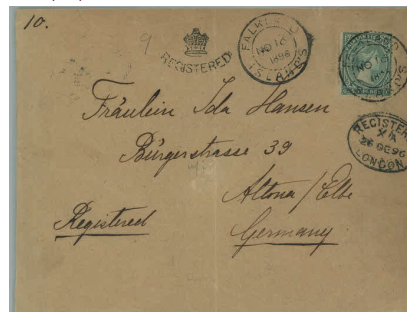 10.
9
REGISTERED
FALKLAND
NO 16
1896
ISLANDS
REGISTERED
26 DE 96
LONDON
Fräulein Ida Hansen
Bürgerstrasse 39
Altona / Elbe
Registered
Germany